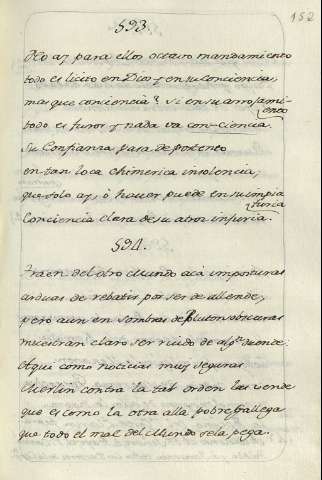 593.
152
No ay para ellos octavo mandamiento
todo es licito en Dios y en su conciencia,
mas que conciencia? si en su arrojami-
ento
todo es furor y nada va con-ciencia.
Su Confianza pasa de portento
en tan loca chimerica insolencia;
que solo ay, ò haver puede en su impia
furia
Conciencia clara de su atroz injuria.
594.
Traen del otro Mundo acà imposturas
arduas de rebatir por ser de allende,
pero aun en sombras de Pluton obscuras
muestran claro ser ruido de algn duende.
Aqui como noticias muy seguras
Merlin contra la tal orden las vende
que es como la otra alla pobre Gallega
que todo el mal del Mundo se la pega.